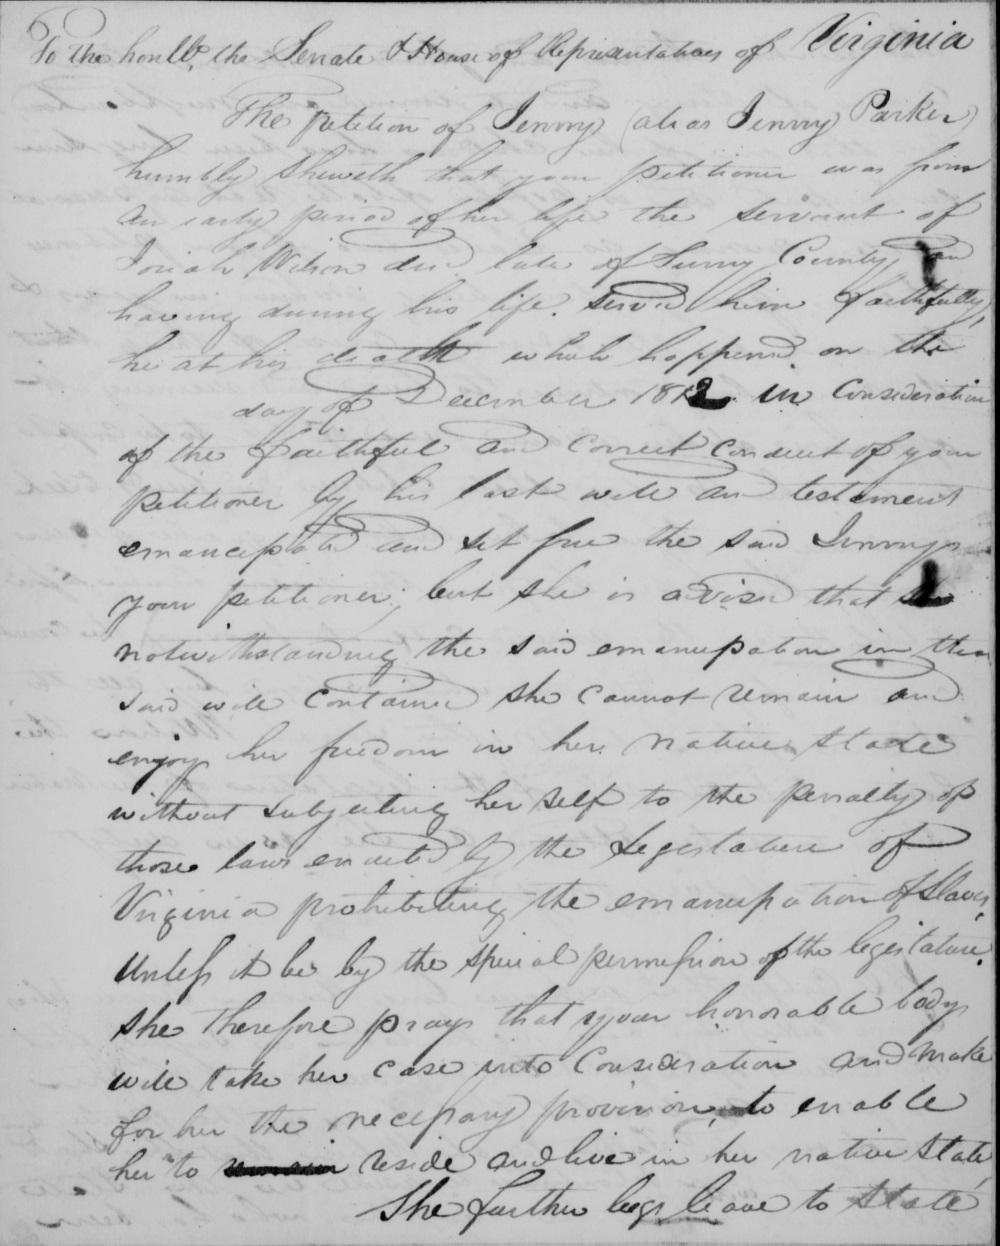 To the honlb. the Senate & House of Representatives of Virginia
The petition of Jenny (alias Jenny Parker)
humbly sheweth that your petitioner was from
an early period of her life the servant of
Josiah Wilson decd late of Surry County, and
having during his life served him faithfully,
he at his death which happened on the
day of December 1812 in Consideration
of the faithful and correct conduct of your
petitioner by his last will and testament
emancipated and set free the said Jenny
your petitioner; but she is advised that
notwithstanding the said emancipation in the
said will contained she cannot remain and
enjoy her freedom in her native State
without subjecting her self to the penalty of
those laws enacted by the Legestature of
Virginia prohibiting the emancipation of Slaves,
unless it be by the special permission of the legislature.
she therefore prays that your honorable body
will take her case into Consideration and make
for her the necessary provision, to enable
her to reside and live in her native State,
She further begs leave to State